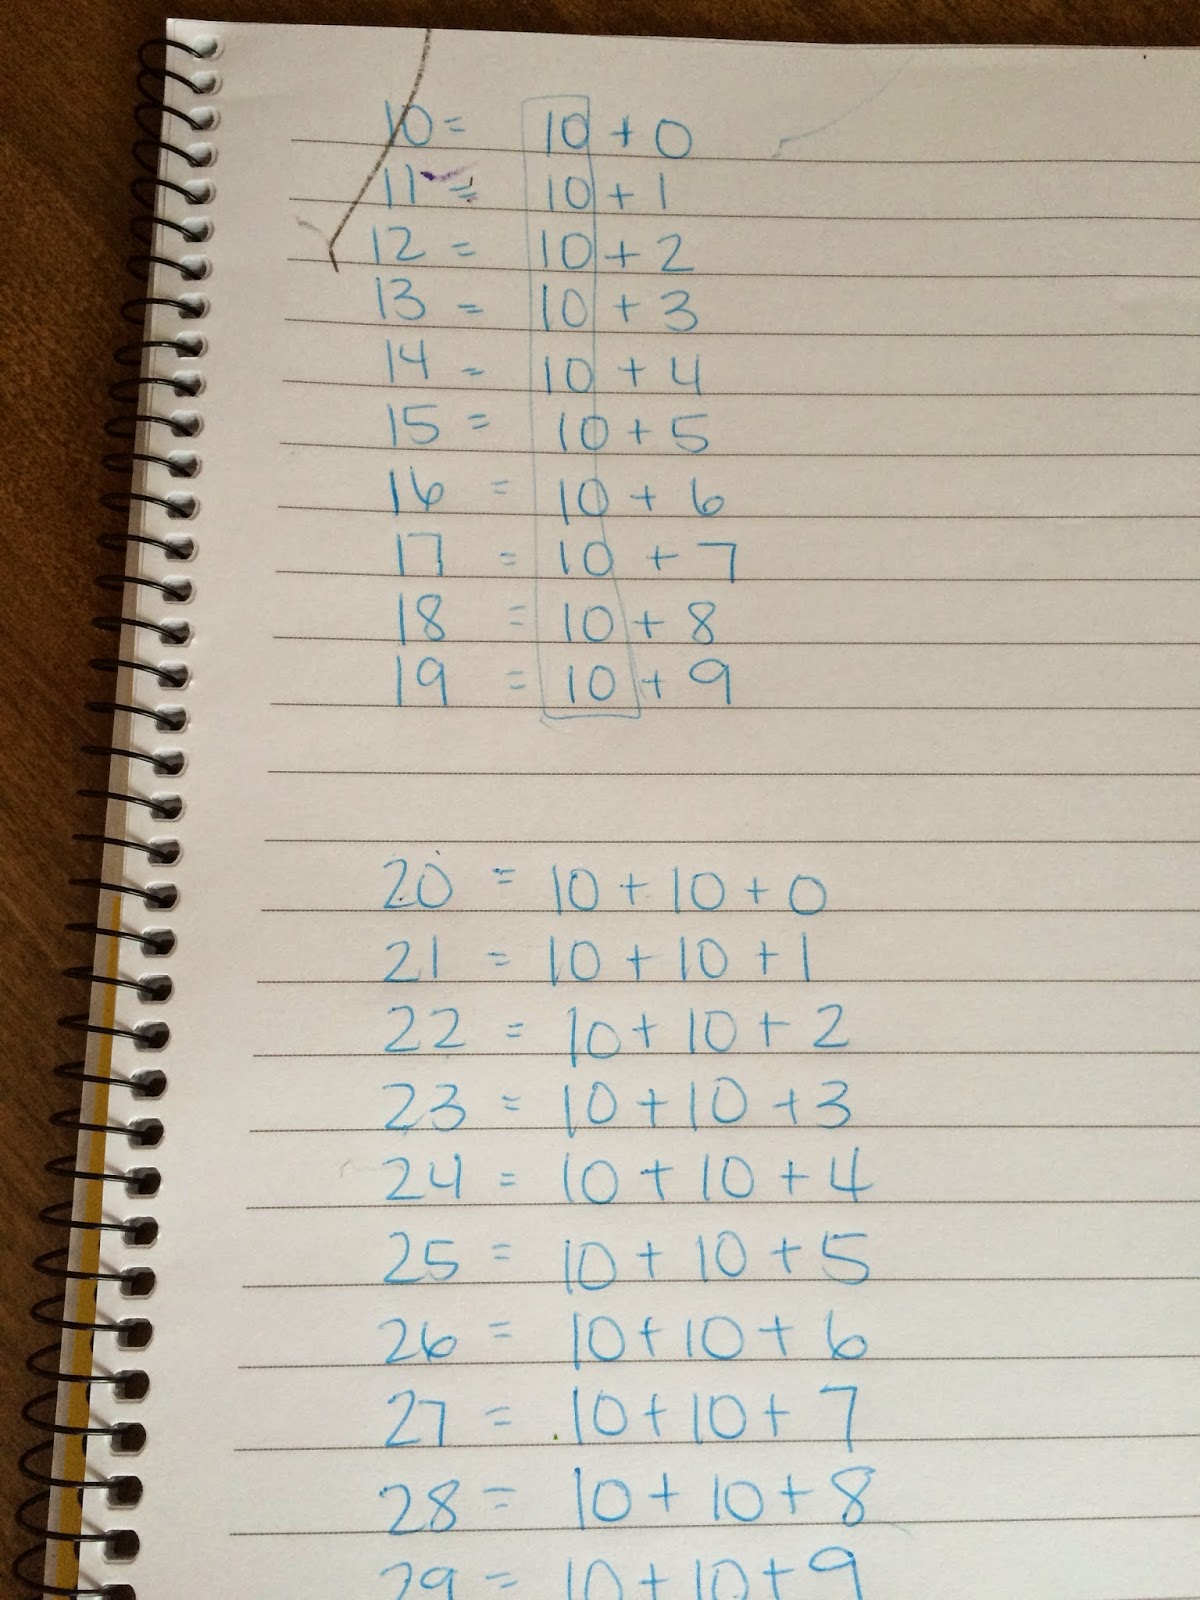 10 = 10 + 0
11 = 10 + 1
12 = 10 + 2
13 = 10 + 3
14 = 10 + 4
15 = 10 + 5
16 = 10 + 6
17 = 10 + 7
18 = 10 + 8
19 = 10 + 9
20 = 10 + 10 + 0
21 = 10 + 10 + 1
22 = 10 + 10 + 2
23 = 10 + 10 + 3
24 = 10 + 10 + 4
25 = 10 + 10 + 5
26 = 10 + 10 + 6
27 = 10 + 10 + 7
28 = 10 + 10 + 8
29 = 10 + 10 + 9